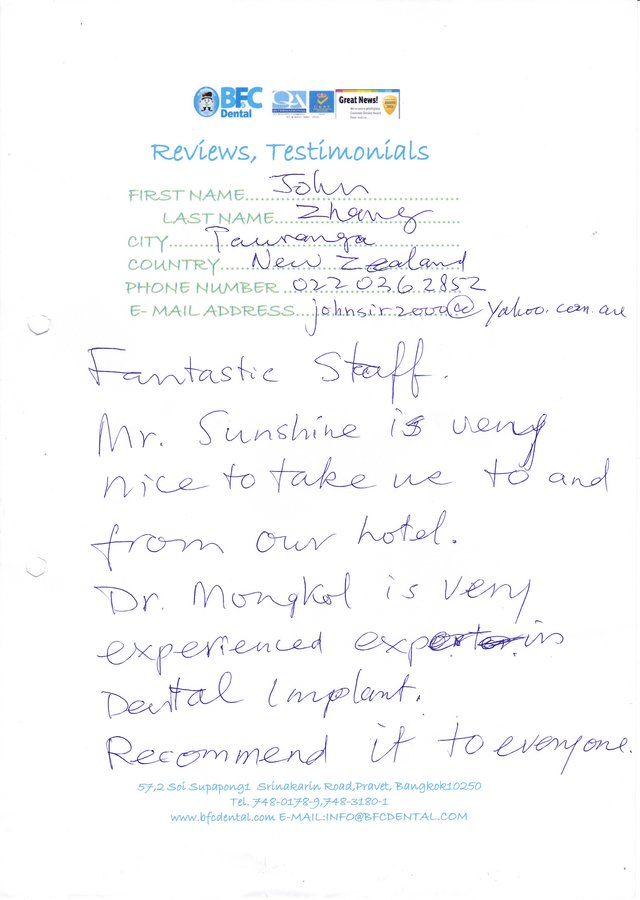 BFC
Dental
QA
INTERNATIONAL
Great News!
Reviews, Testimonials
FIRST NAME.....John
LAST NAME.....Zhang
CITY.....Tauranga
COUNTRY.....New Zealand
PHONE NUMBER.....022 026 2852
E- MAIL ADDRESS.....johnsir2000@yahoo.com.au
Fantastic Staff.
Mr. Sunshine is very
nice to take us to and
from our hotel.
Dr. Mongkol is very
experienced expert in
Dental Implant.
Recommend it to everyone.
57,2 Soi Supapong1 Srinakarin Road,Pravet, Bangkok10250
Tel. 748-0178-9,748-3180-1
www.bfcdental.com E-MAIL:INFO@BFCDENTAL.COM